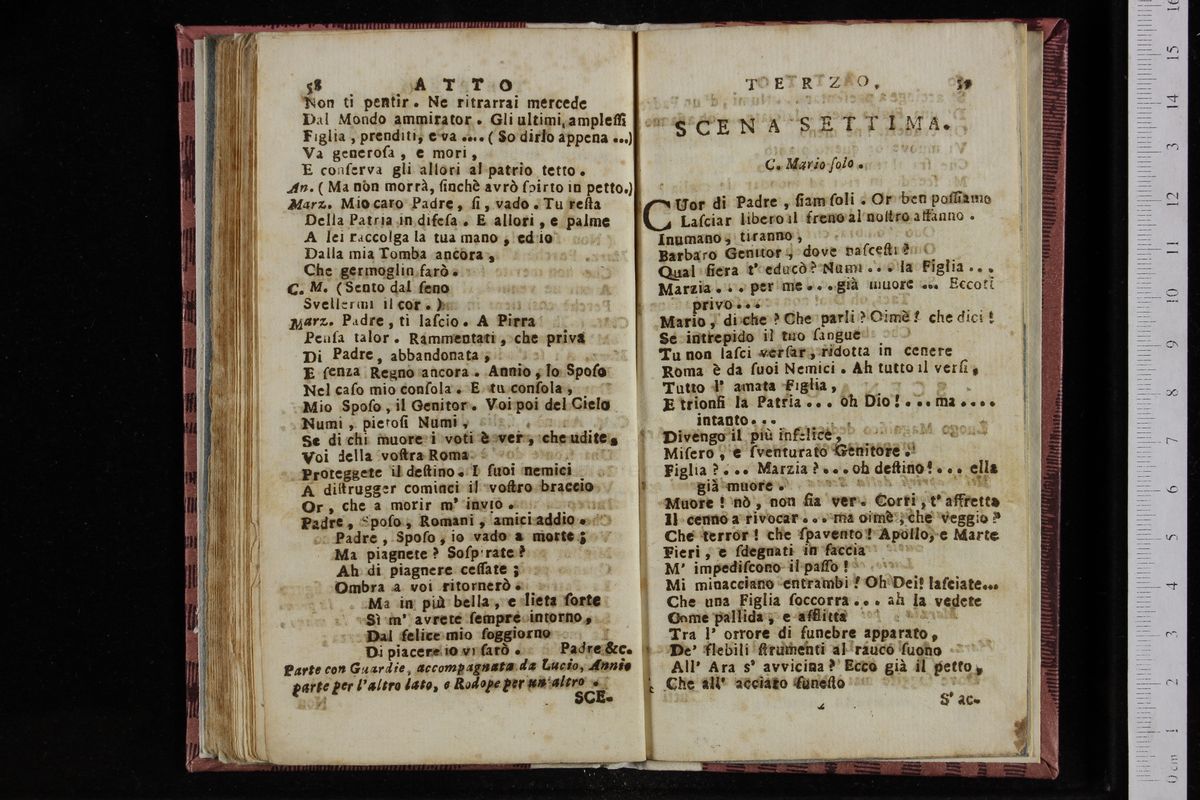 58 ATTO
Non ti pentir. Ne ritrarrai mercede
Dal Mondo ammirator. Gli ultimi, ampleſſi
Figlia, prenditi, e va .... (So dirlo appena ...)
Va generoſa, e mori,
E conſerva gli allori al patrio tetto.
An. (Ma non morrà, finchè avrò ſpirto in petto.)
Marz. Mio caro Padre, ſi, vado. Tu reſta
Della Patria in difeſa. E allori, e palme
A lei raccolga la tua mano, ed io
Dalla mia Tomba ancora,
Che germoglin farò.
C. M. (Sento dal ſeno
Svellermi il cor.)
Marz. Padre, ti laſcio. A Pirra
Penſa talor. Rammentati, che priva
Di Padre, abbandonata,
E ſenza Regno ancora. Annio, lo Spoſo
Nel caſo mio conſola. E tu conſola,
Mio Spoſo, il Genitor. Voi poi del Cielo
Numi, pietoſi Numi,
Se di chi muore i voti è ver, che udite,
Voi della voſtra Roma
Proteggete il deſtino. I ſuoi nemici
A diſtrugger cominci il voſtro braccio
Or, che a morir m' invio.
Padre, Spoſo, Romani, amici addio.
Padre, Spoſo, io vado a morte;
Ma piagnete? Soſpirate?
Ah di piagnere ceſſate;
Ombra a voi ritornerò.
Ma in più bella, e lieta ſorte
Sì m' avrete ſempre intorno,
Dal felice mio ſoggiorno
Di piacere io vi ſarò. Padre &c.
Parte con Guardie, accompagnata da Lucio, Annio
parte per l'altro lato, e Rodope per un altro.
SCE-
TERZO. 59
SCENA SETTIMA.
C. Mario ſolo.
CUor di Padre, ſiam ſoli. Or ben poſſiamo
Laſciar libero il freno al noſtro affanno.
Inumano, tiranno,
Barbaro Genitor, dove naſceſti?
Qual fiera t' educò? Numi... la Figlia...
Marzia... per me... già muore ... Eccoti
privo...
Mario, di che? Che parli? Oimè! che dici!
Se intrepido il tuo ſangue
Tu non laſci verſar, ridotta in cenere
Roma è da ſuoi Nemici. Ah tutto il verſi,
Tutto l' amata Figlia,
E trionfi la Patria... oh Dio!... ma....
intanto...
Divengo il più infelice,
Miſero, e ſventurato Genitore.
Figlia?... Marzia?... oh deſtino!... ella
già muore.
Muore! nò, non ſia ver. Corri, t' affretta
Il cenno a rivocar... ma oimè, che veggio?
Che terror! che ſpavento! Apollo, e Marte
Fieri, e ſdegnati in faccia
M' impediſcono il paſſo!
Mi minacciano entrambi! Oh Dei! laſciate...
Che una Figlia ſoccorra... ah la vedete
Come pallida, e afflitta
Tra l' orrore di funebre apparato,
De' flebili ſtrumenti al rauco ſuono
All' Ara s' avvicina? Ecco già il petto,
Che all' acciaro funeſto
S' ac-
0 cm 1 2 3 4 5 6 7 8 9 10 11 12 13 14 15 16